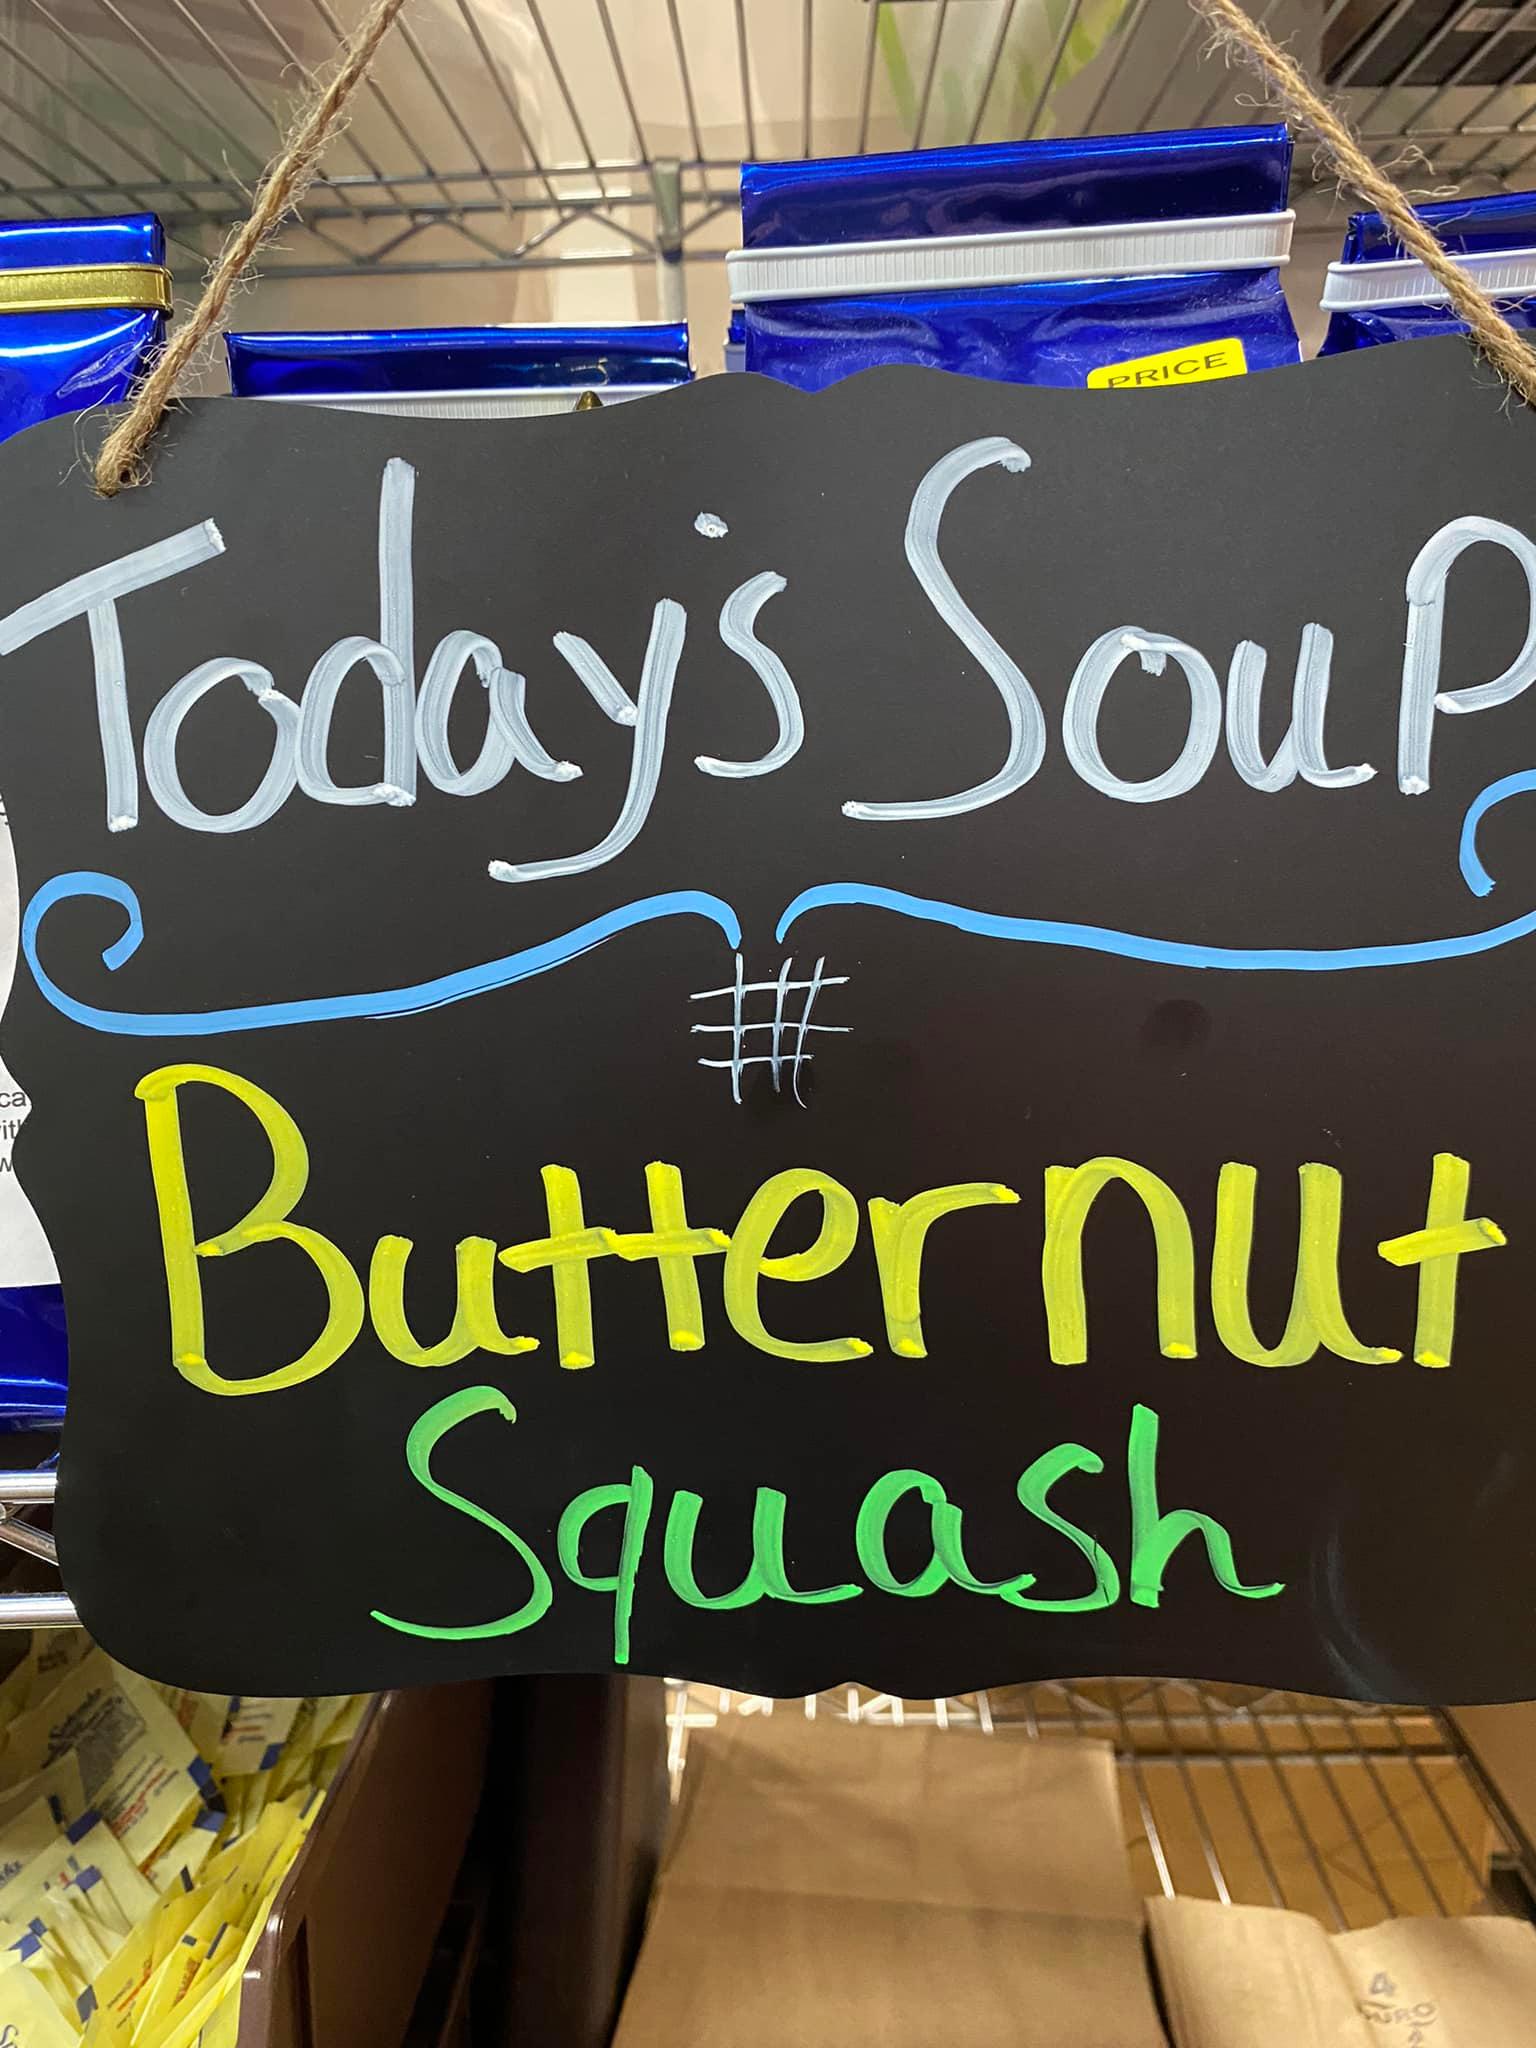 PRICE
Today's Soup
#
Butternut
Squash
4
DURO